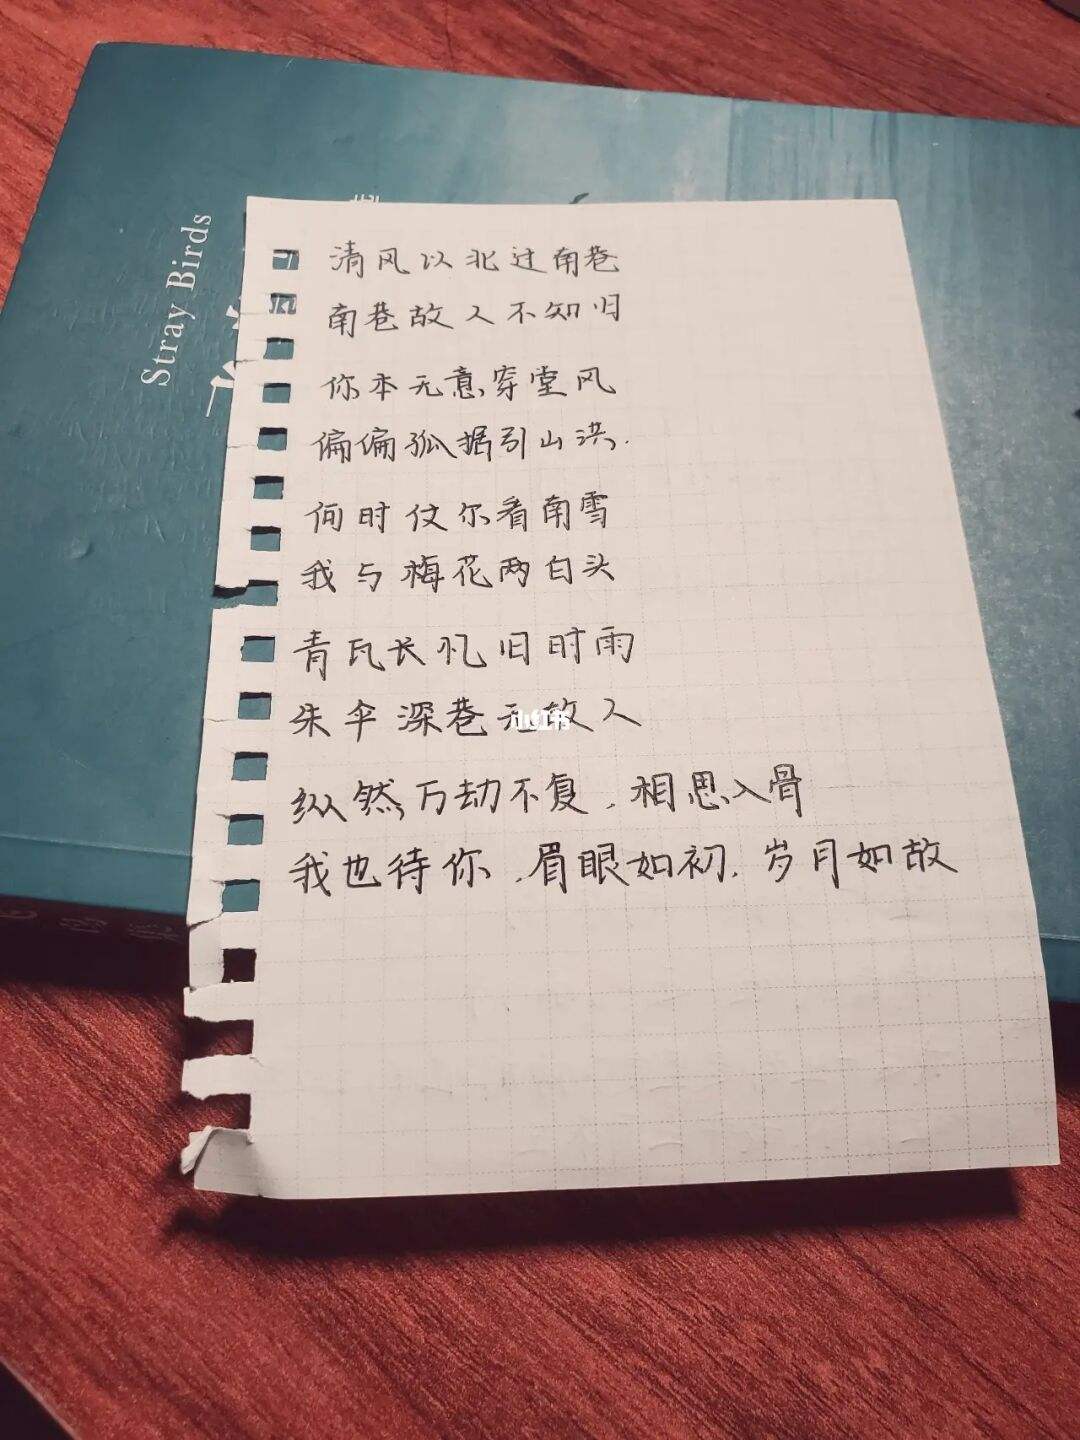 Stray Birds
清风以北过南巷
南巷故人不知归
你本无意穿堂风
偏偏孤据引山洪.
何时仗尔看南雪
我与梅花两白头
青瓦长忆旧时雨
朱伞深巷无故人
小红书
纵然万劫不复,相思入骨
我也待你,眉眼如初,岁月如故